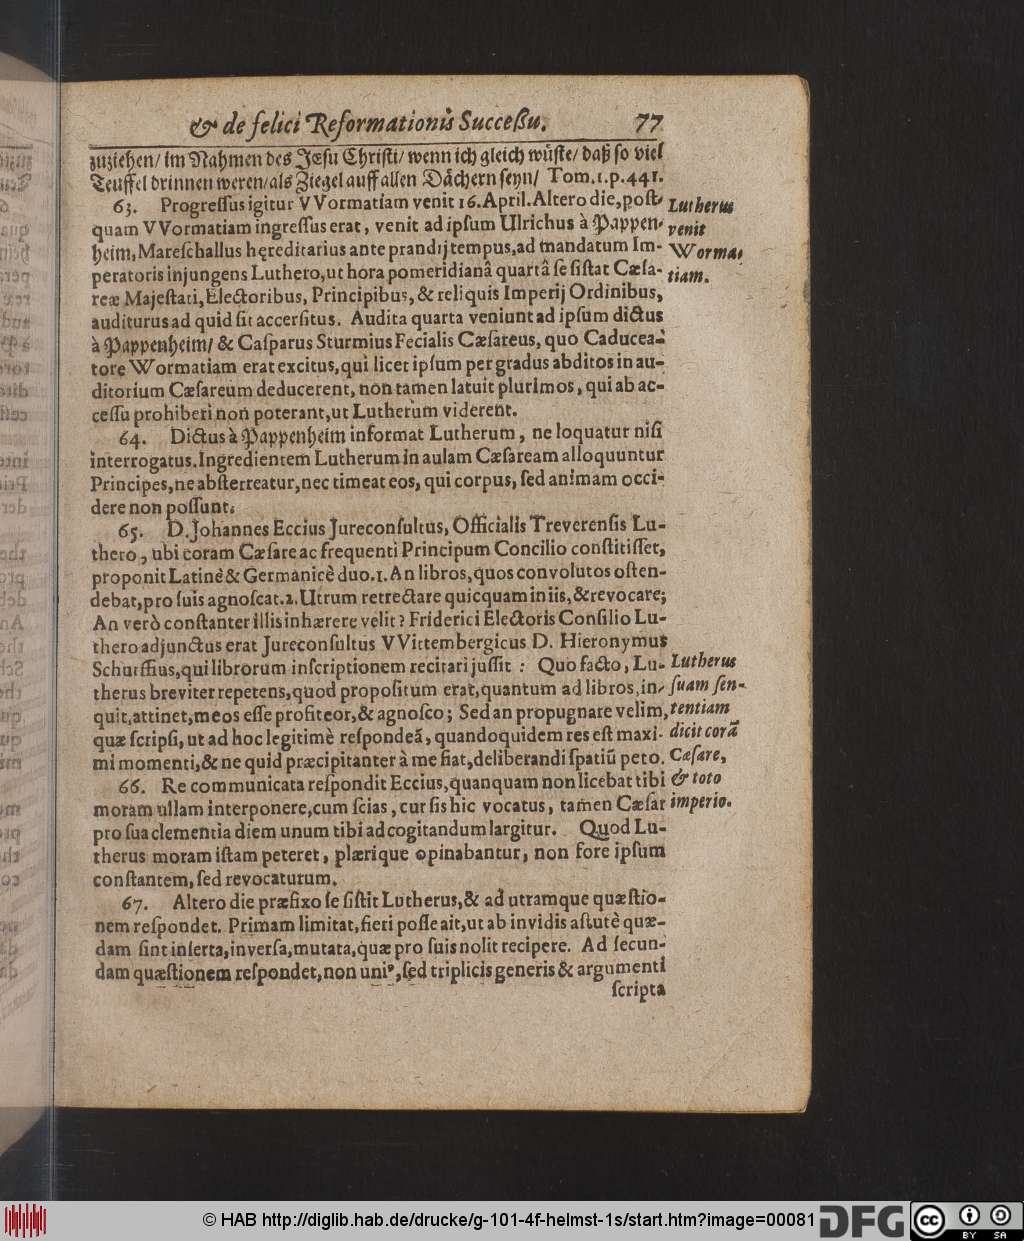 & de felici Reformationis Succeßu. 77
zuziehen/ im Nahmen des JEsu Christi/ wenn ich gleich wůste/ daß so viel
Teuffel drinnen weren/als Ziegel auff allen Dåchern seyn/ Tom.1.p.441.
63. Progreſſus igitur VVormatiam venit 16.April. Altero die, poſt-
quam VVormatiam ingreſſus erat, venit ad ipſum Ulrichus à Pappen-
heim, Mareſchallus hęreditarius ante prandij tempus, ad mandatum Im-
peratoris injungens Luthero, ut hora pomeridianâ quartâ ſe ſiſtat Cæſa-
reæ Majeſtati, Electoribus, Principibus, & reliquis Imperij Ordinibus,
auditurus ad quid ſit accerſitus. Audita quarta veniunt ad ipſum dictus
à Pappenheim/ & Caſparus Sturmius Fecialis Cæſareus, quo Caducea-
tore Wormatiam erat excitus, qui licet ipſum per gradus abditos in au-
ditorium Cæſareum deducerent, non tamen latuit plurimos, qui ab ac-
ceſſu prohiberi non poterant, ut Lutherum viderent.
Lutherus
venit
Worma-
tiam.
64. Dictus à Pappenheim informat Lutherum, ne loquatur niſi
interrogatus. Ingredientem Lutherum in aulam Cæſaream alloquuntur
Principes, ne abſterreatur, nec timeat eos, qui corpus, ſed animam occi-
dere non poſſunt.
65. D. Johannes Eccius Jureconſultus, Officialis Treverenſis Lu-
thero, ubi coram Cæſare ac frequenti Principum Concilio conſtitiſſet,
proponit Latinè & Germanicè duo. 1. An libros, quos convolutos oſten-
debat, pro ſuis agnoſcat. 2. Utrum retrectare quicquam in iis, & revocare;
An verò conſtanter illis inhærere velit? Friderici Electoris Conſilio Lu-
thero adjunctus erat Jureconſultus VVittembergicus D. Hieronymus
Schurffius, qui librorum inſcriptionem recitari juſſit: Quo facto, Lu-
therus breviter repetens, quod propoſitum erat, quantum ad libros, in-
quit, attinet, meos eſſe profiteor, & agnoſco; Sed an propugnare velim,
quæ ſcripſi, ut ad hoc legitimè reſpondeā, quandoquidem res eſt maxi-
mi momenti, & ne quid præcipitanter à me fiat, deliberandi ſpatiū peto.
Lutherus
ſuam ſen-
tentiam
dicit corā
Cæſare,
& toto
imperio.
66. Re communicata reſpondit Eccius, quanquam non licebat tibi
moram ullam interponere, cum ſcias, cur ſis hic vocatus, tamen Cæſar
pro ſua clementia diem unum tibi ad cogitandum largitur. Quod Lu-
therus moram iſtam peteret, plærique opinabantur, non fore ipſum
conſtantem, ſed revocaturum.
67. Altero die præfixo ſe ſiſtit Lutherus, & ad utramque quæſtio-
nem reſpondet. Primam limitat, fieri poſſe ait, ut ab invidis aſtutè quæ-
dam ſint inſerta, inverſa, mutata, quæ pro ſuis nolit recipere. Ad ſecun-
dam quæſtionem reſpondet, non uniꝰ, ſed triplicis generis & argumenti
ſcripta
© HAB http://diglib.hab.de/drucke/g-101-4f-helmst-1s/start.htm?image=00081 DFG CC BY SA